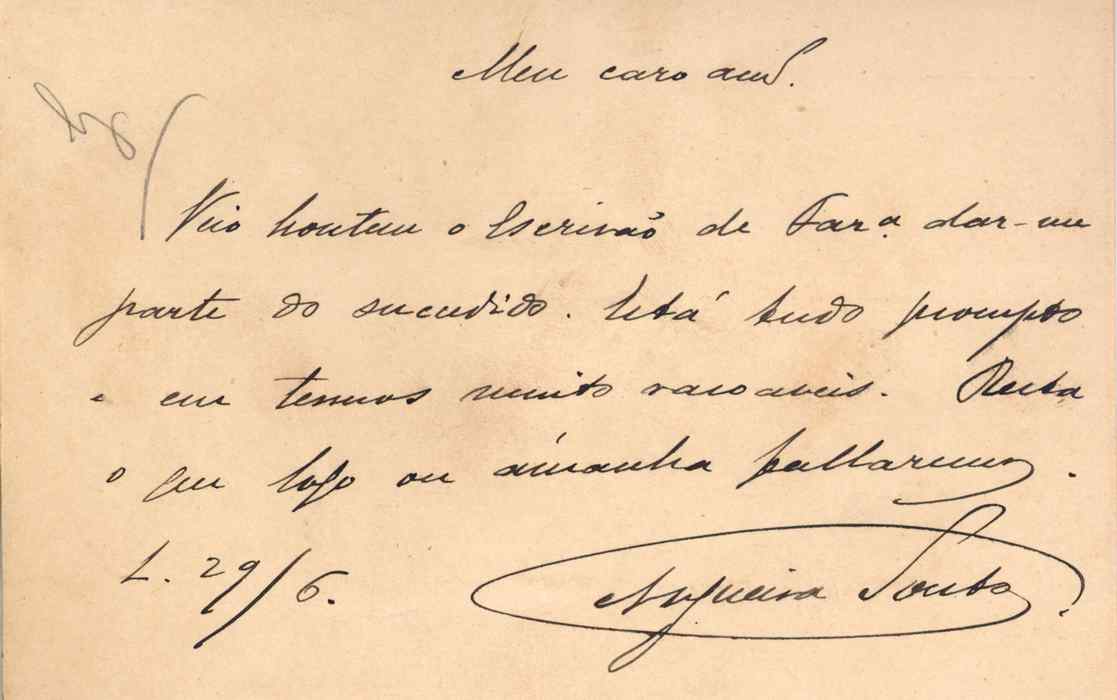 Meu caro amº.
Veio hontem o Escrivão de Tarª dar-me
parte do succedido. Está tudo prompto
e em termos muito rasoaveis. Resta
o que logo ou ámanhã fallaremos.
L. 29/6.
Nogueira Souto